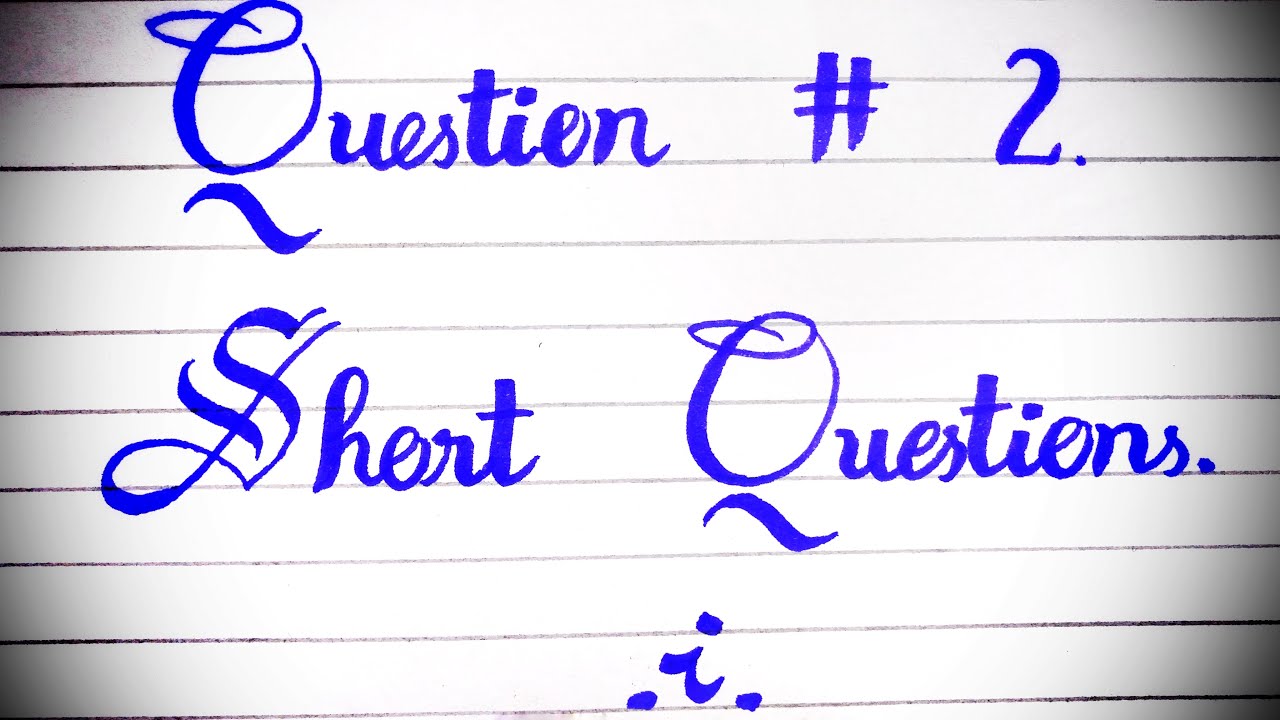 Question # 2.
Short Questions.
.i.